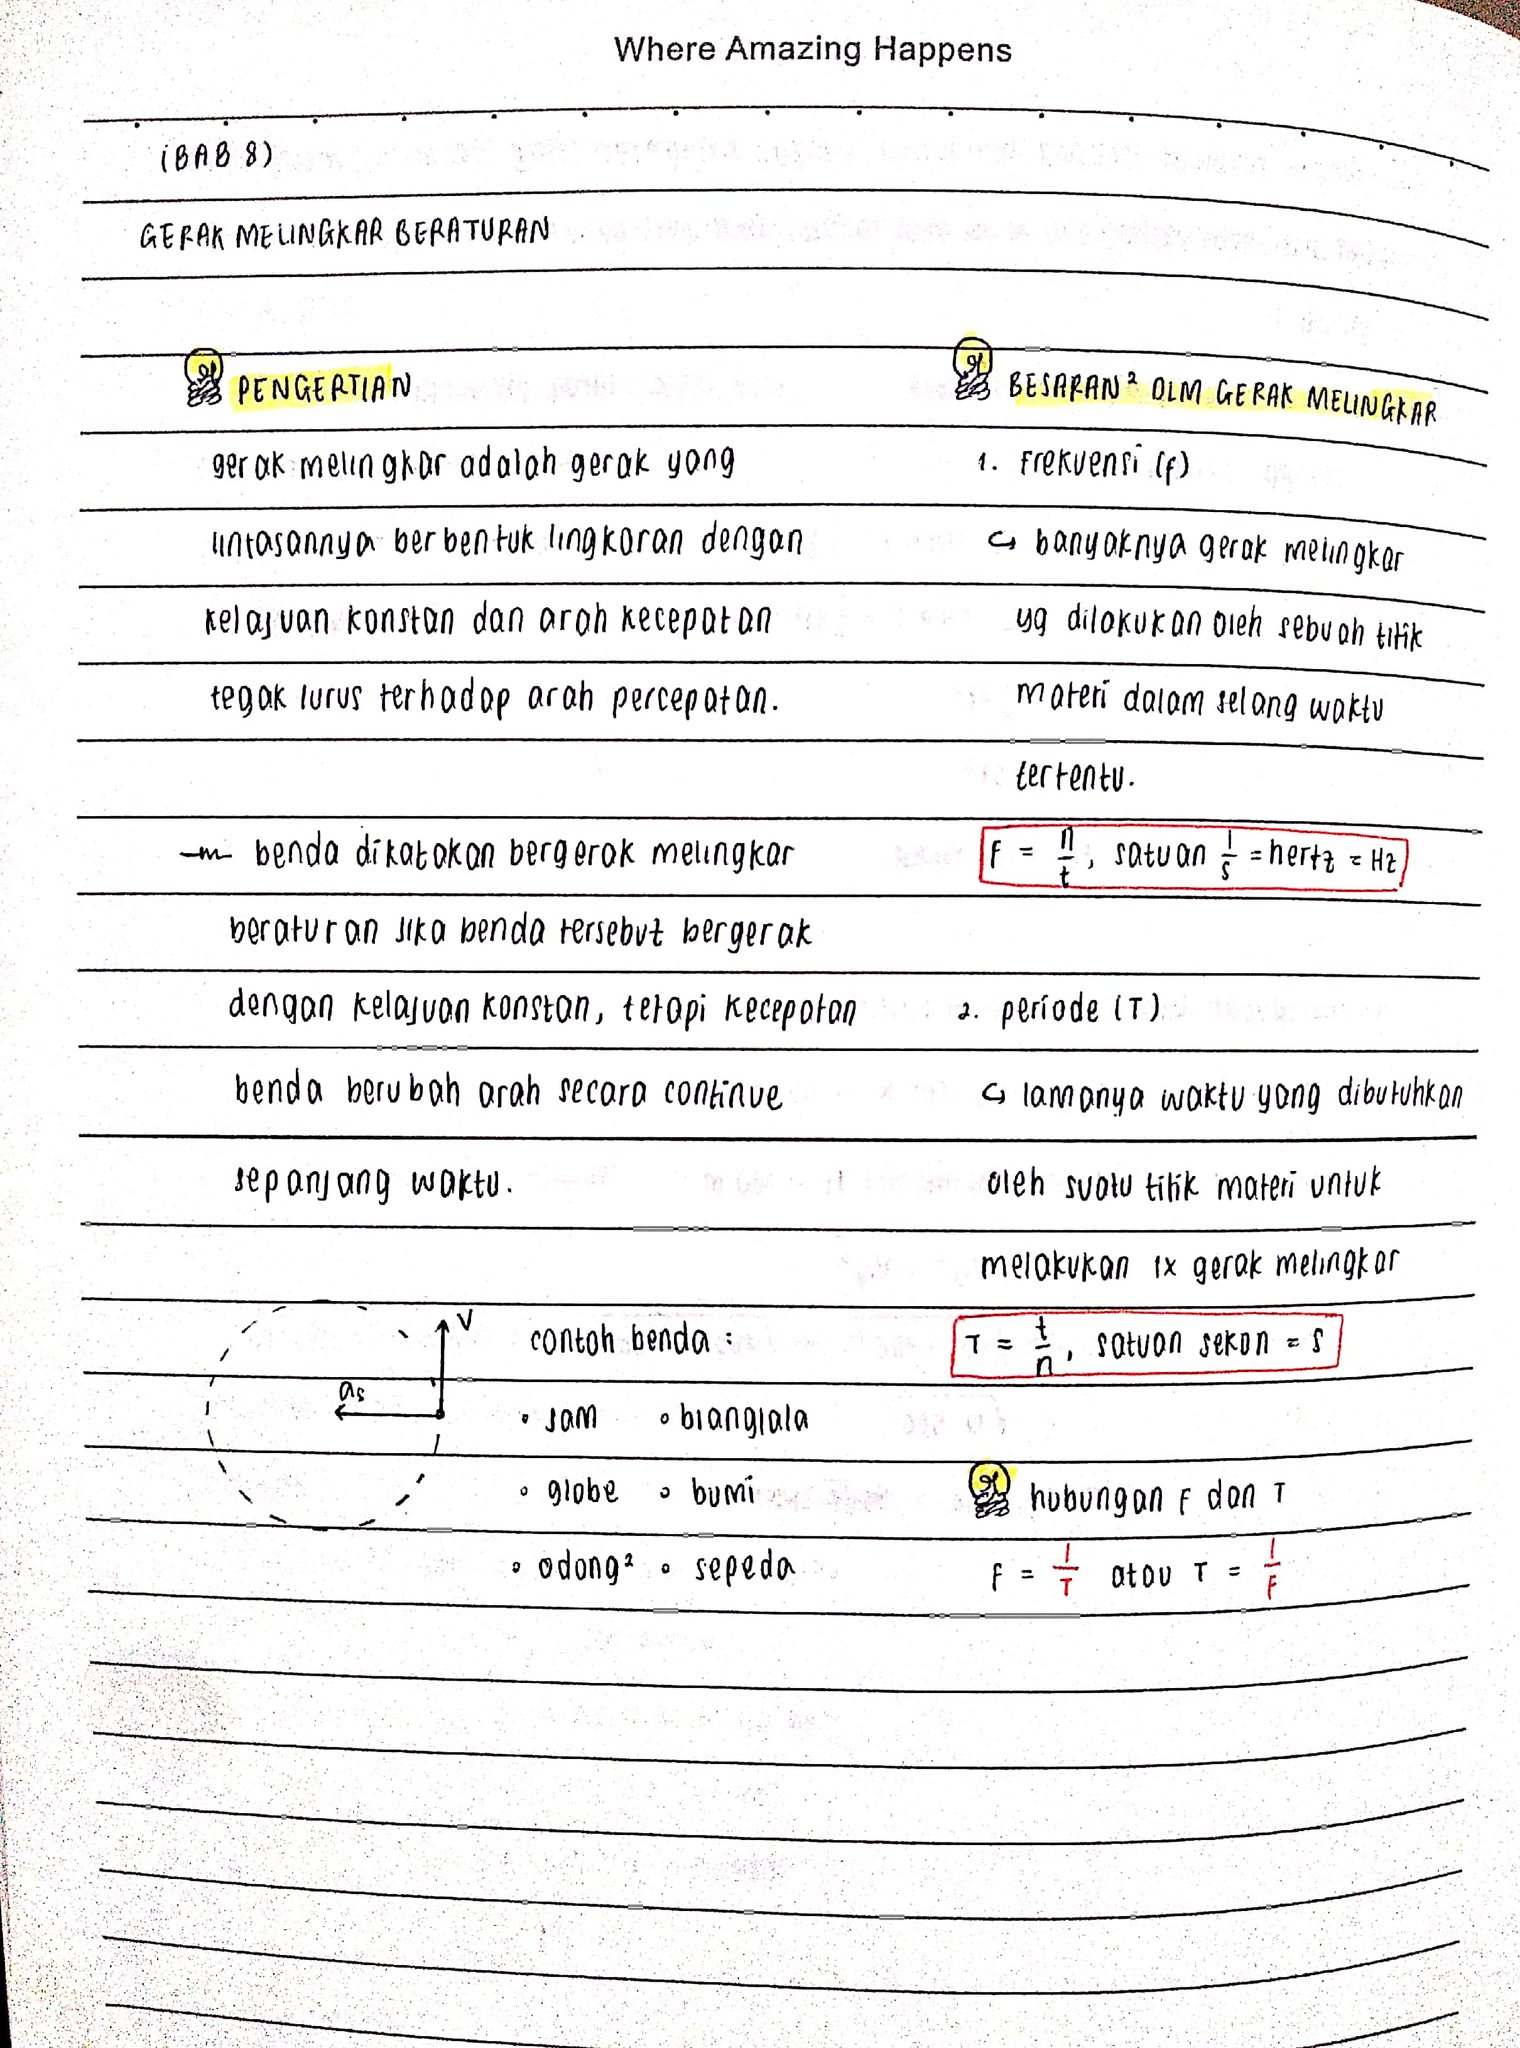 Where Amazing Happens
(BAB 8)
GERAK MELINGKAR BERATURAN
PENGERTIAN
gerak melingkar adalah gerak yang
lintasannya berbentuk lingkaran dengan
kelajuan konstan dan arah kecepatan
tegak lurus terhadap arah percepatan.
benda dikatakan bergerak melingkar
beraturan jika benda tersebut bergerak
dengan kelajuan konstan, tetapi kecepatan
benda berubah arah secara continue
sepanjang waktu.
V
as
contoh benda :
• jam • bianglala
• globe • bumi
• odong² • sepeda
BESARAN² DLM GERAK MELINGKAR
1. Frekuensi (f)
↪ banyaknya gerak melingkar
yg dilakukan oleh sebuah titik
materi dalam selang waktu
tertentu.
F = n/t, satuan 1/s = hertz = Hz
2. periode (T)
↪ lamanya waktu yang dibutuhkan
oleh suatu titik materi untuk
melakukan 1x gerak melingkar
T = t/n, satuan sekon = s
hubungan F dan T
F = 1/T atau T = 1/F